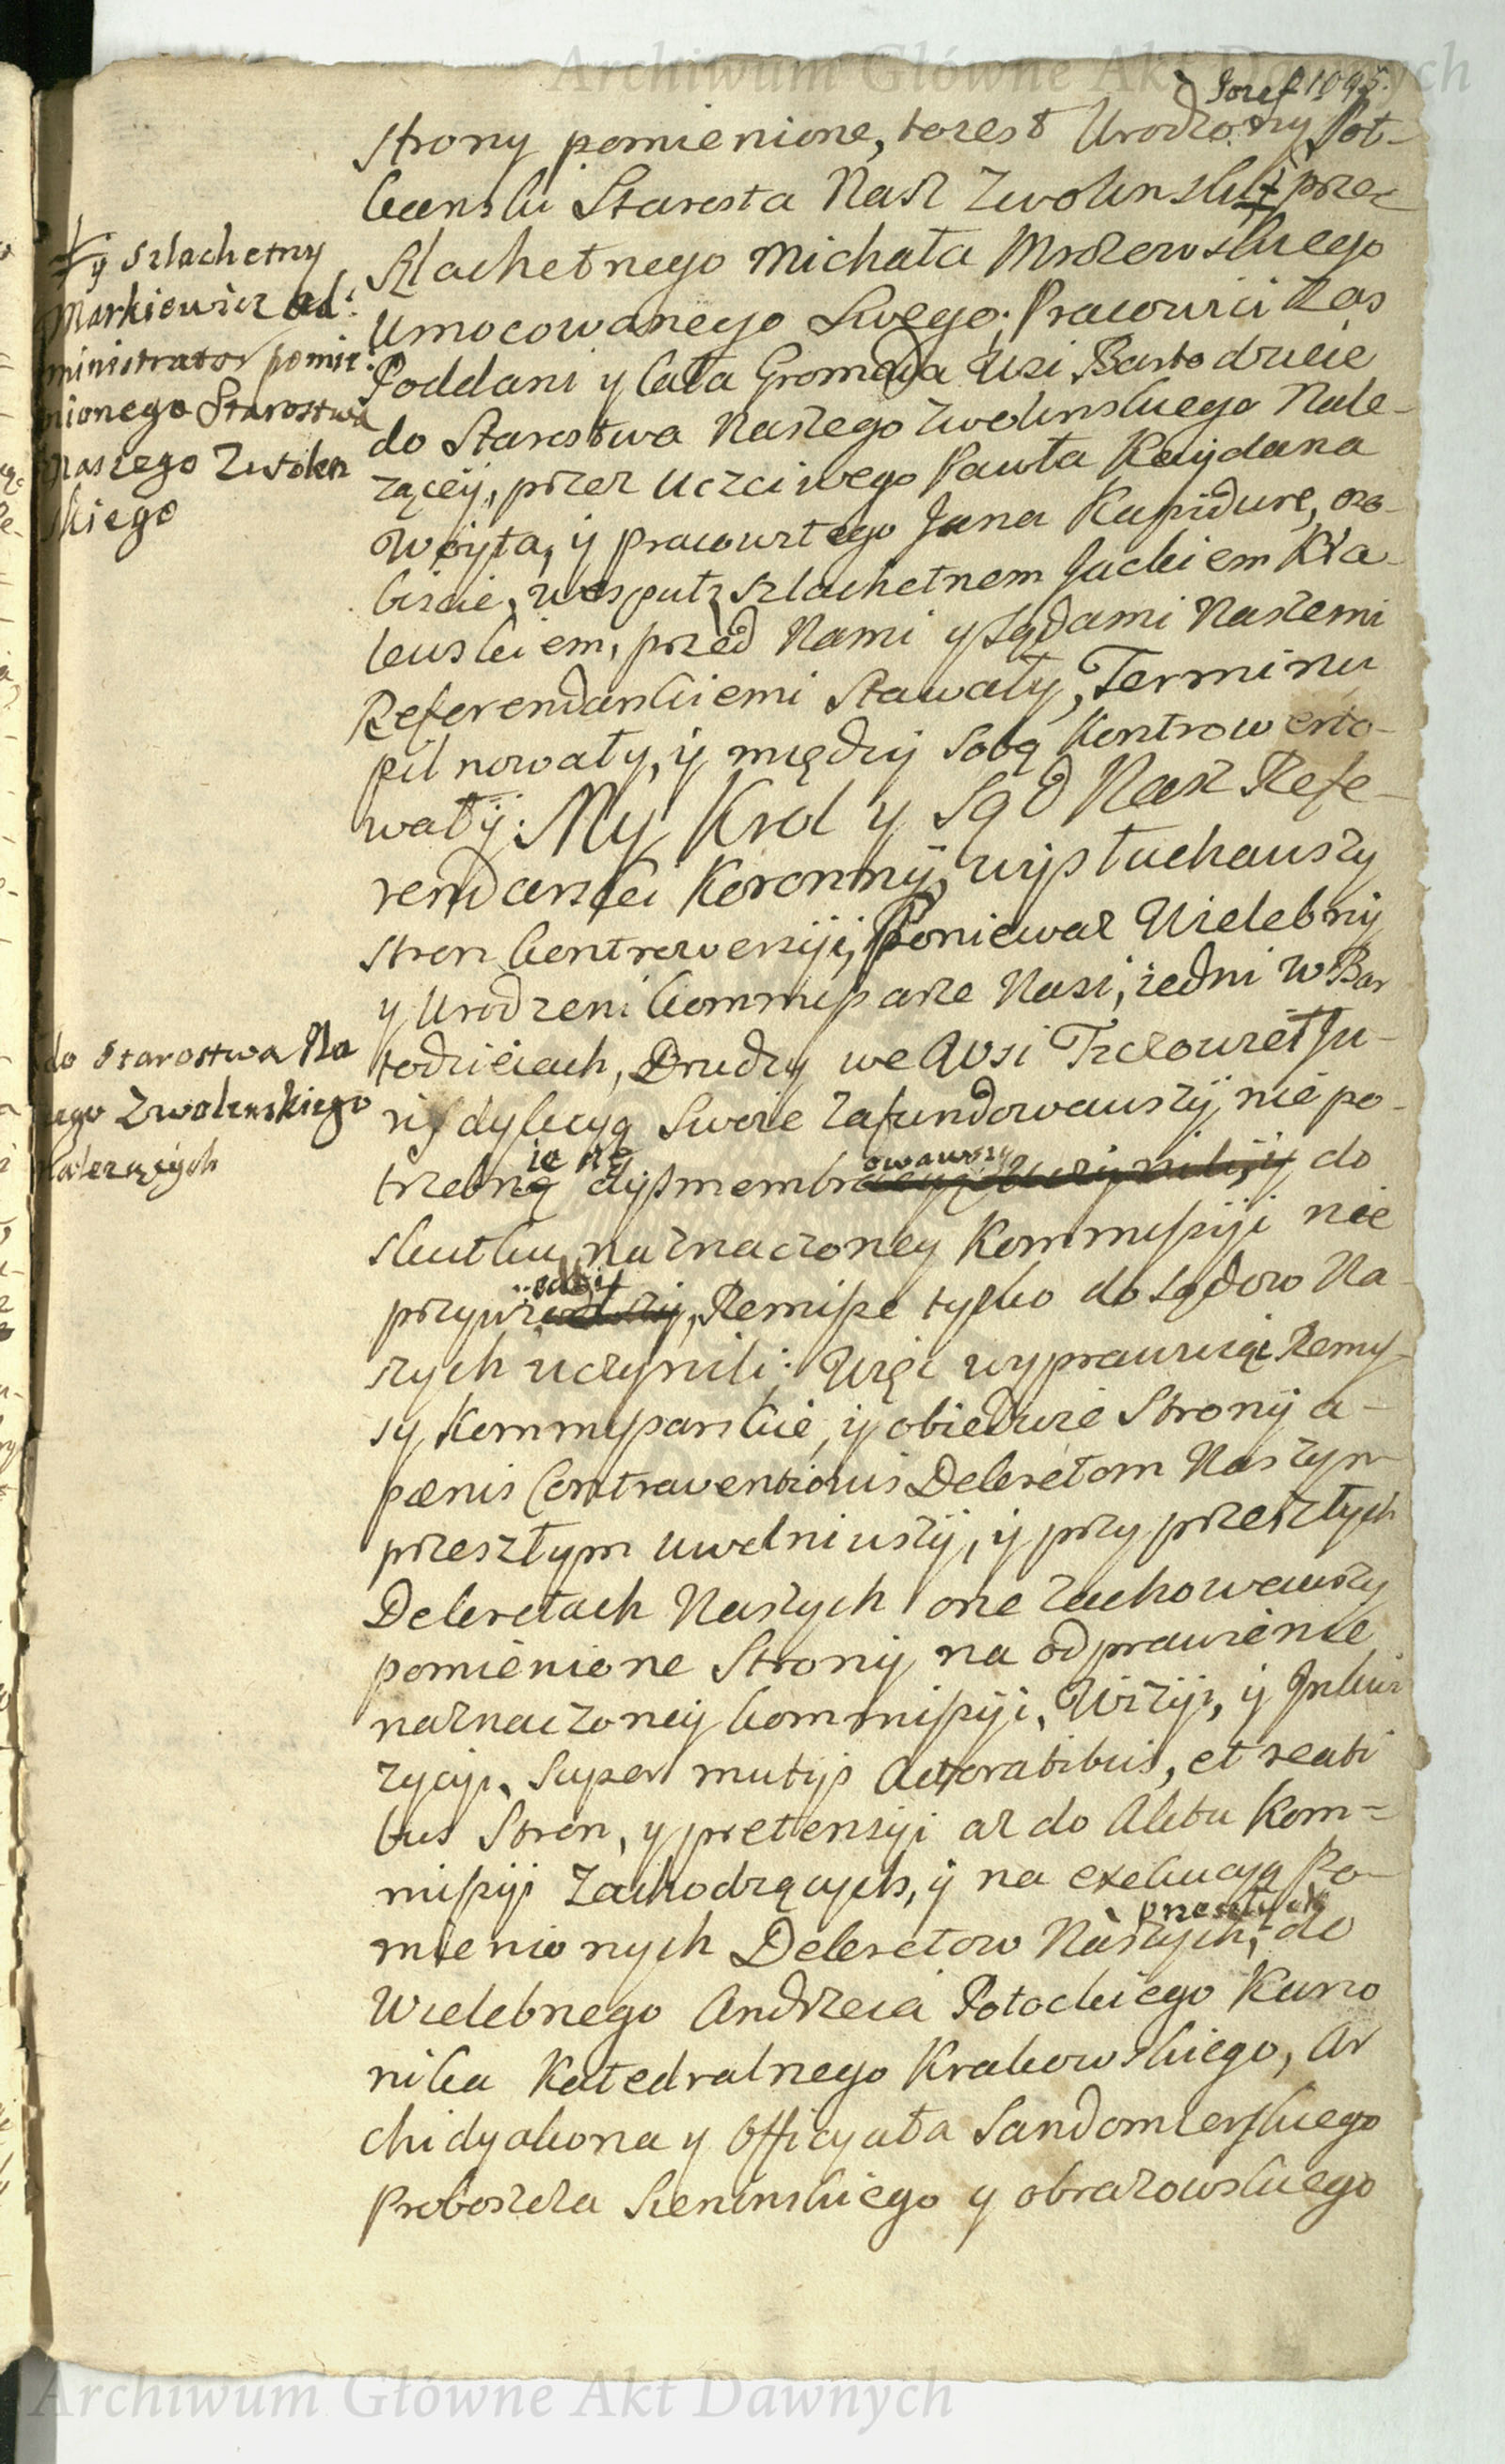 Archiwum Główne Akt Dawnych
Jozef 1095.
strony pomienione, to iest Urodzony Pot-
kanski Starosta Nasz Zwolinski ǂ przez
Szlachetnego Michała Mrozowskiego
Umocowanego Swego; Pracowici zas
Poddani y cała Gromada Wsi Bartodzieie
do Starostwa Naszego Zwolinskiego Nale-
zącey, przez Uczciwego Pawła Kaydana
Woyta, y pracowitego Jana Kapidurę, oso-
biscie, wespuł z szlachetnem Jackiem
przed Nami y Sądami Naszemi
Referendarskiemi Stawały, Terminu
pilnowały, y między sobą kontrowerto-
wały: My Krol y Sąd Nasz Refe-
rendarski Koronny, wysłuchawszy
stron kontrowersyi, Poniewaz Wielebny
y Urodzeni Kommissarze Nasi, iedni w Bar
todzieiach, Drudzy we Wsi Ju-
risdykcyą Swoie zafundowawszy, nie po-
trzebnie się dysmembrowawszy do
skutku naznaczoney Kommissyi nie
przywiodszy, Remissę tylko do Sądow Na-
szych uczynili; Więc wyprawuiąc Remis-
sy Kommissarskie, y obiedwie Strony a
pænis Contraventionis Dekretom Naszym
przeszłym uwolniwszy, y przy przeszłych
Dekretach Naszych one zachowawszy
pomienione Strony na odprawienie
naznaczoney Kommissyi, Wizyi, y Inkwi
zycyi, super mutuis Actoratibus, et reati
bus Stron, y pretensyi az do Aktu Kom=
missyi Zachodzących, y na exekucyą Po-
przeszłych
mienionych Dekretow Naszych, do
Wielebnego Andrzeia Potockiego Kano
nika Katedralnego Krakowskiego, Ar
chidyakona y Officyała Sandomierskiego
Proboszcza Sieninskiego y obrazowskiego
ǂ y szlachetny
Markiewicz ad-
ministrator pomie-
nionego Starostwa
naszego Zwolen
skiego
do Starostwa Na
szego Zwolenskiego
nalezących
Archiwum Główne Akt Dawnych